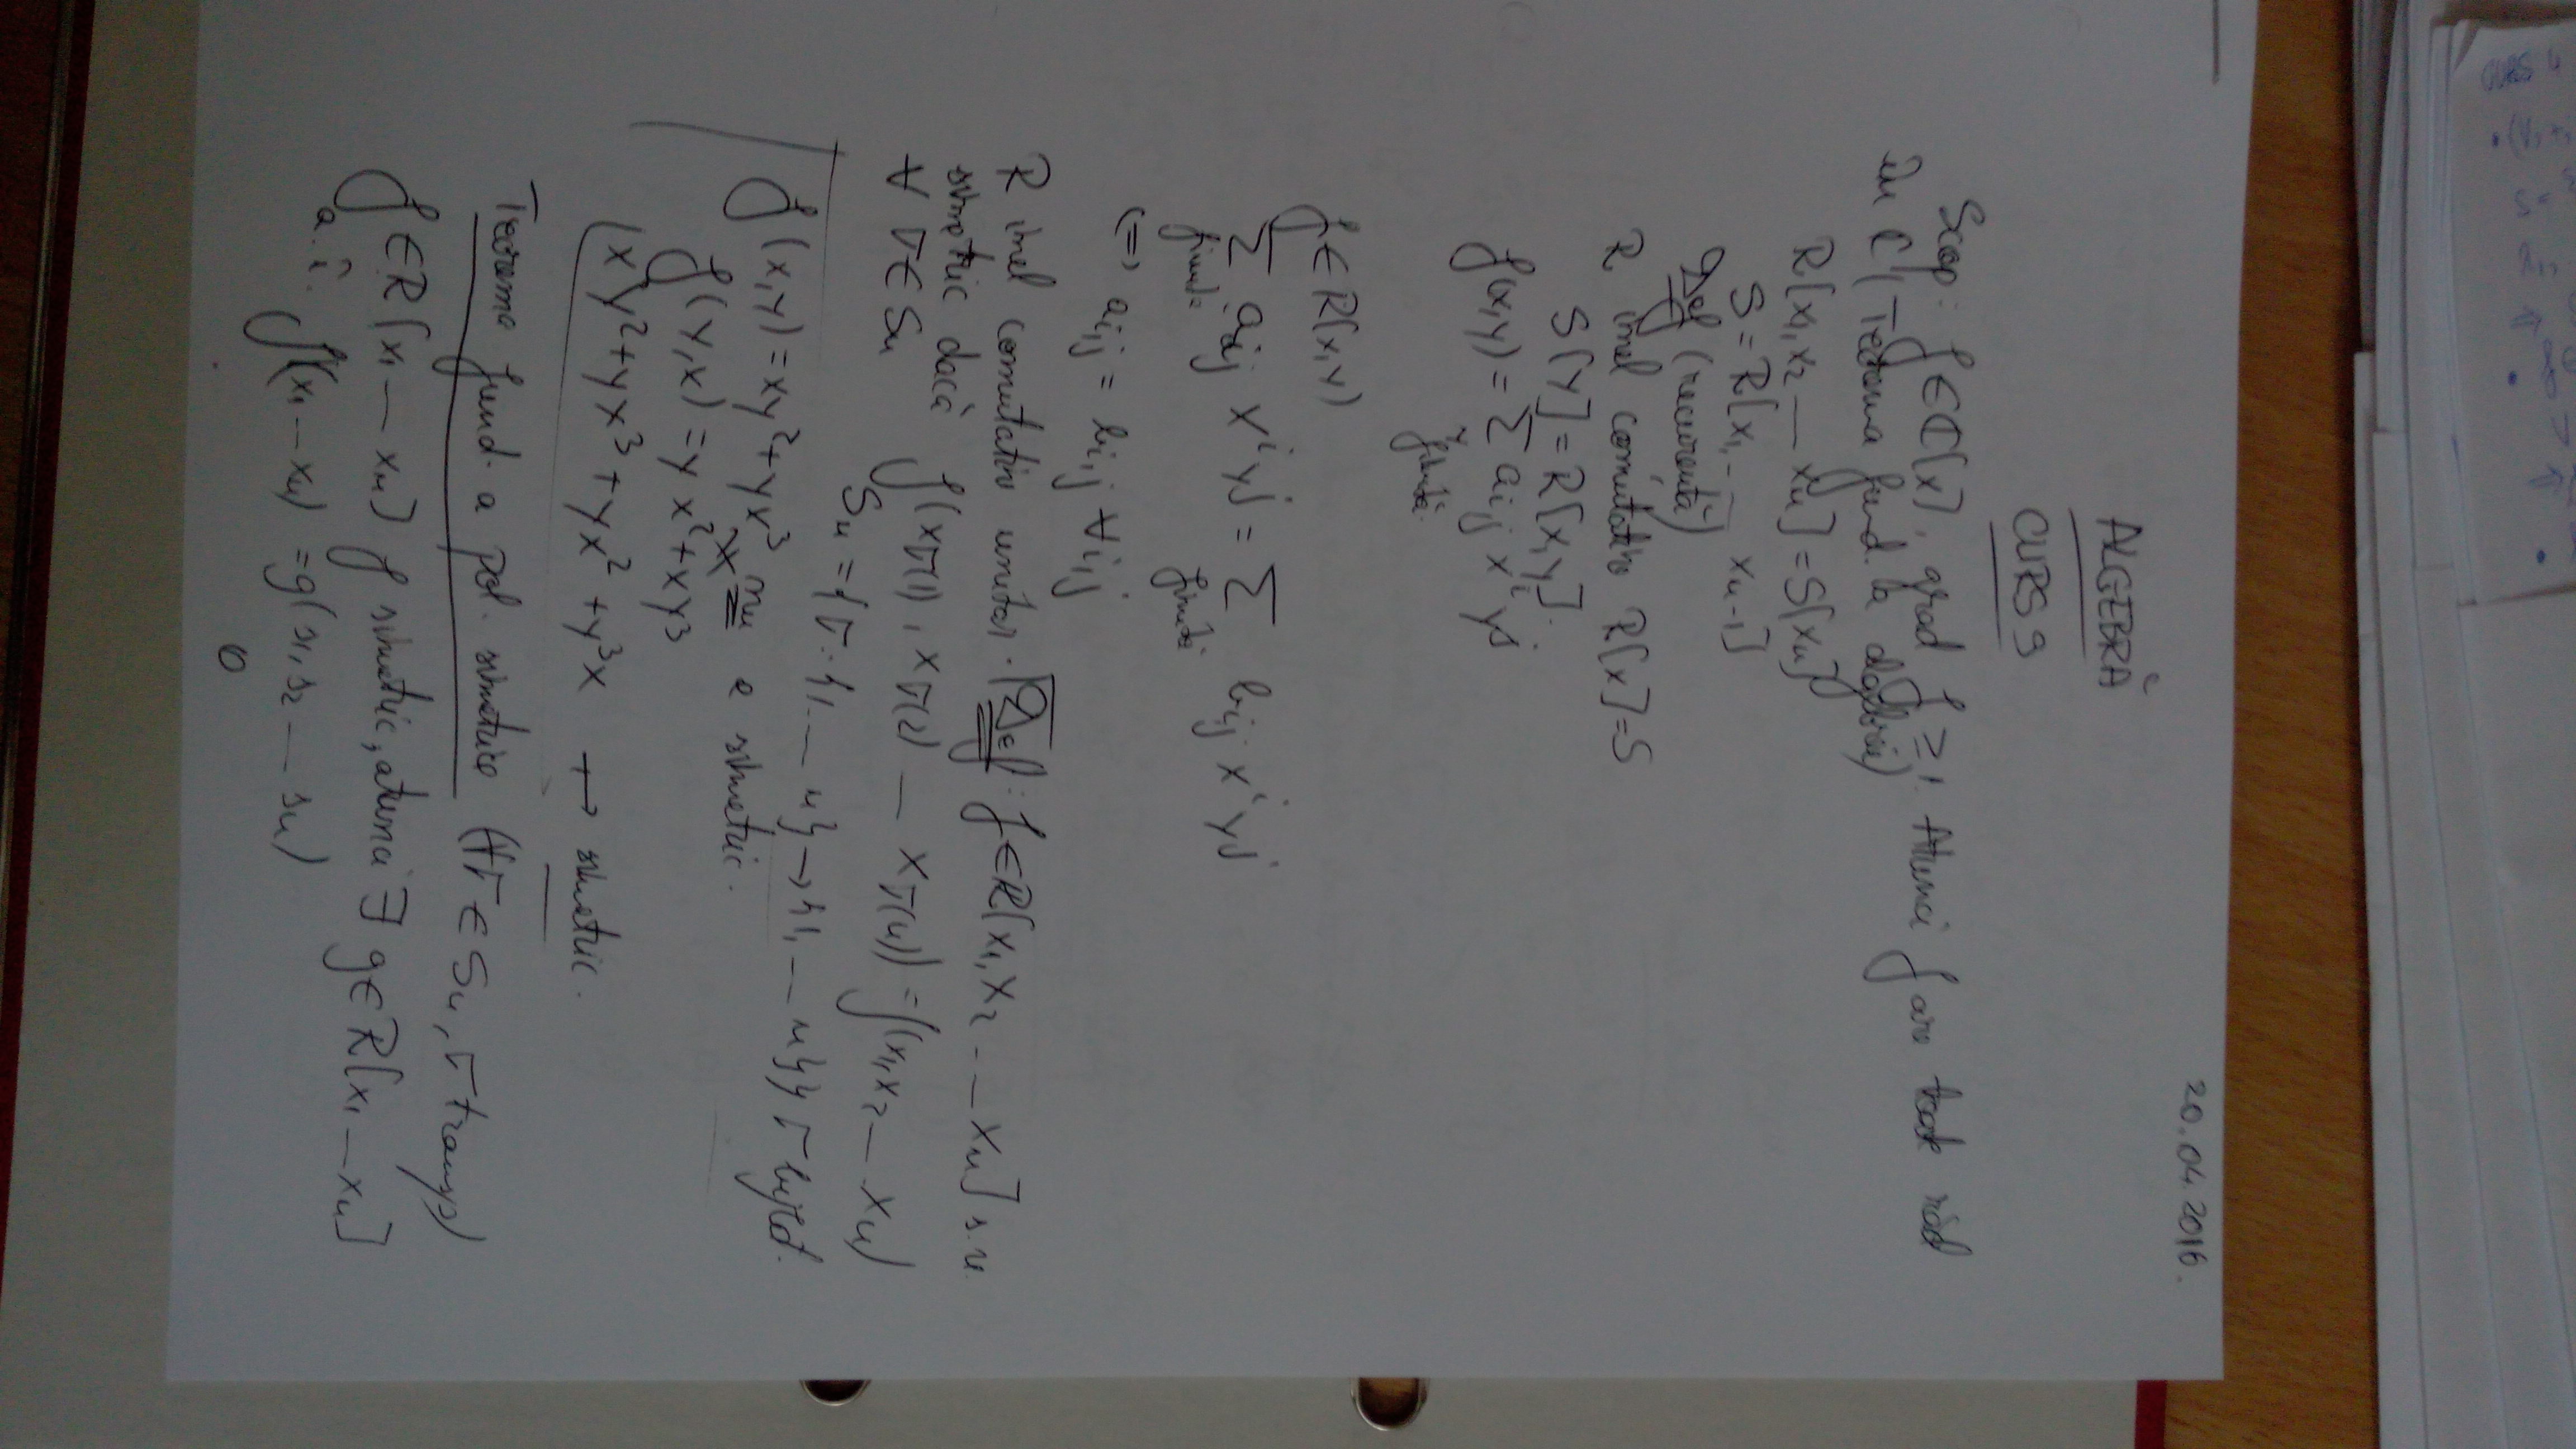 20.04.2016.
ALGEBRĂ
CURS 9
Scop: f ∈ ℂ[x], grad f ≥ 1. Atunci f are toate răd
în ℂ (Teorema fund. a algebrei)
R[x₁, x₂ — xₙ] = S[xₙ]
S = R[x₁, - - xₙ₋₁]
Def (recurentă)
R inel comutativ R[x] = S
S[y] = R[x, y]
f(x,y) = Σ aᵢⱼ xⁱ yʲ
finită.
f ∈ R[x,y]
Σ aᵢⱼ xⁱ yʲ = Σ bᵢⱼ xⁱ yʲ
finită finită
(=) aᵢⱼ = bᵢⱼ ∀ i,j
R inel comutativ unitar. Def: f ∈ R[x₁, x₂ - — xₙ] s.n.
simetric dacă f(x_σ(1), x_σ(2) — x_σ(n)) = f(x₁, x₂ — xₙ)
∀ σ ∈ Sₙ Sₙ = {σ: {1 .. — n} → {1, — n}} σ biject.
f(x,y) = xy² + yx³ nu e simetric.
f(y,x) = yx² + xy³
(xy² + yx³ + yx² + y³x → simetric.
Teorema fund. a pol. simetrice (∀ σ ∈ Sₙ, σ transp)
f ∈ R[x₁ — xₙ] f simetric, atunci ∃ g ∈ R[x₁ — xₙ]
a.î. f(x₁ — xₙ) = g(s₁, s₂ — sₙ)